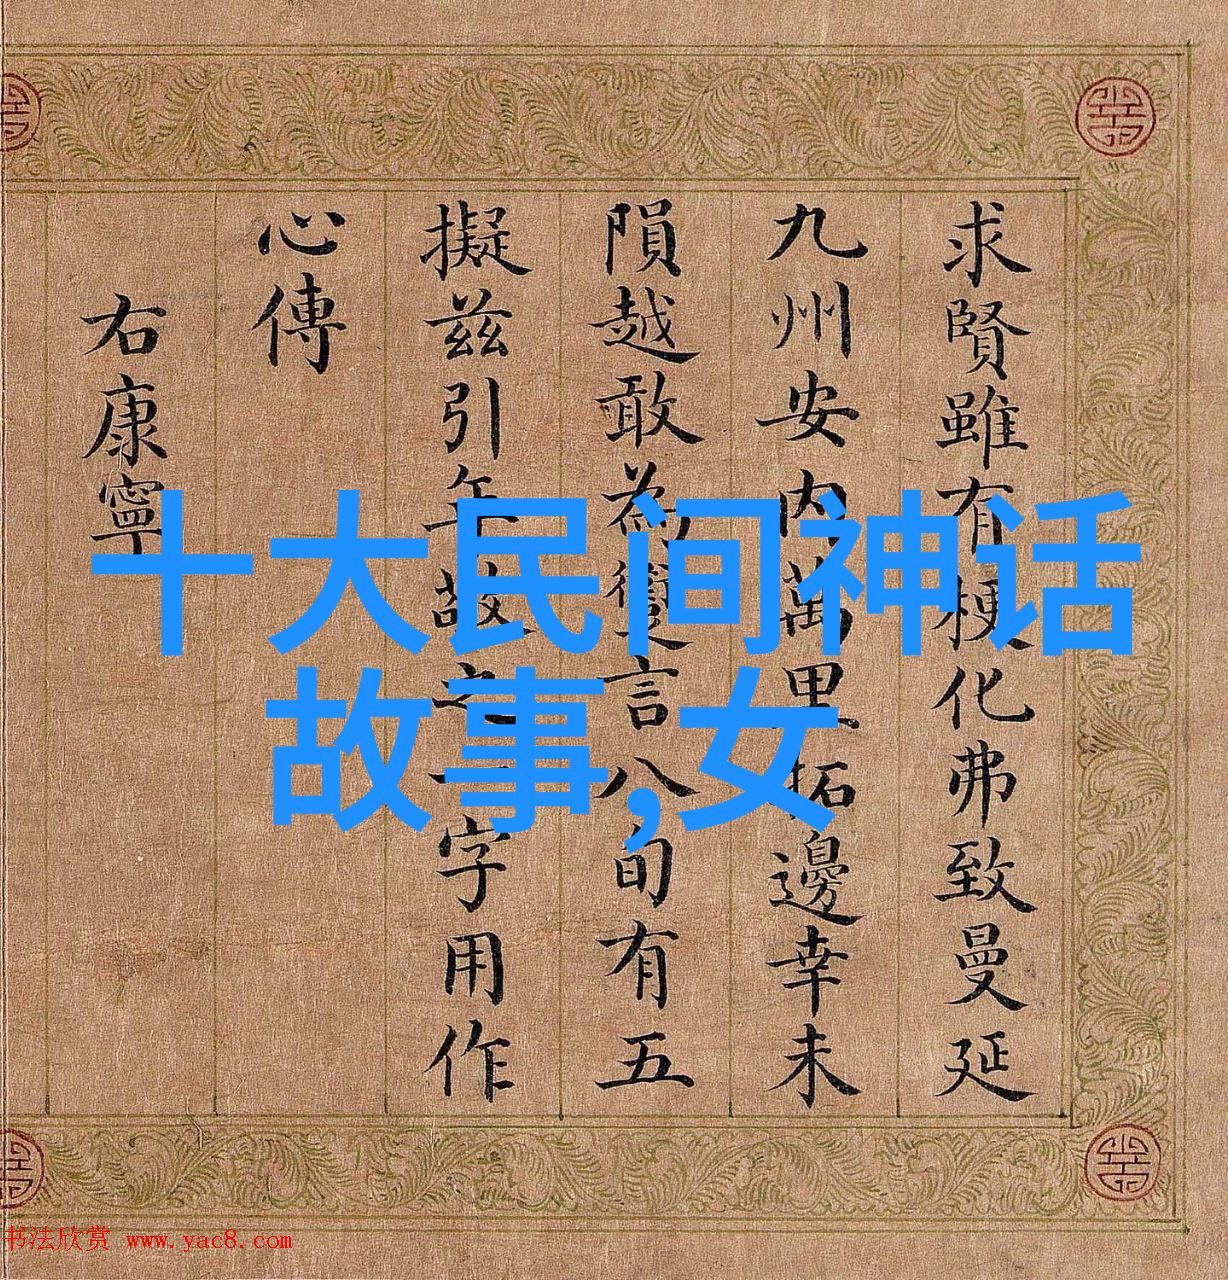 求賢雖有梗化弗致曼延
九州安内萬里拓邊幸未
隕越敢為言八旬有五
擬茲引年故之一字用作
心傳
右康寧
十大民间神话
故事,女
书法欣赏 www.yac8.com